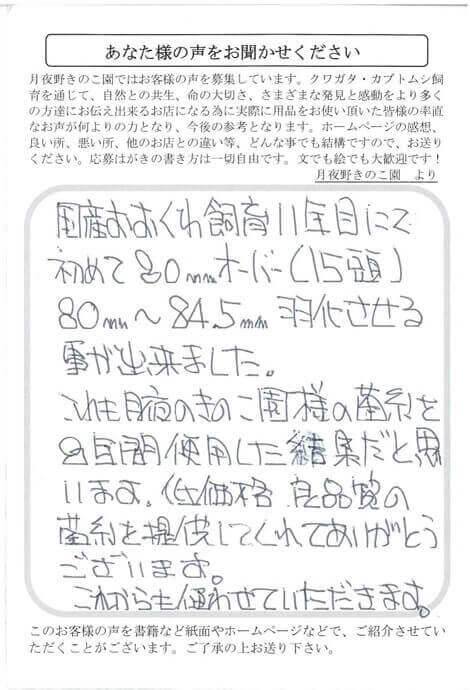 あなた様の声をお聞かせください
月夜野きのこ園ではお客様の声を募集しています。クワガタ・カブトムシ飼
育を通じて、自然との共生、命の大切さ、さまざまな発見と感動をより多く
の方達にお伝え出来るお店になる為に実際に用品をお使い頂いた皆様の率直
なお声が何よりの力となり、今後の参考となります。ホームページの感想、
良い所、悪い所、他のお店との違い等、どんな事でも結構ですので、お送り
ください。応募はがきの書き方は一切自由です。文でも絵でも大歓迎です！
月夜野きのこ園　より
国産おおくわ飼育11年目にて
初めて80mmオーバー(15頭)
80mm～84.5mm 羽化させる
事が出来ました。
これも月夜のきのこ園様の菌糸を
2年間使用した結果だと思
います。低価格 良品質の
菌糸を提供してくれてありがとう
ございます。
これからも使わせていただきます。
このお客様の声を書籍など紙面やホームページなどで、ご紹介させてい
ただくことがございます。ご了承の上お送り下さい。